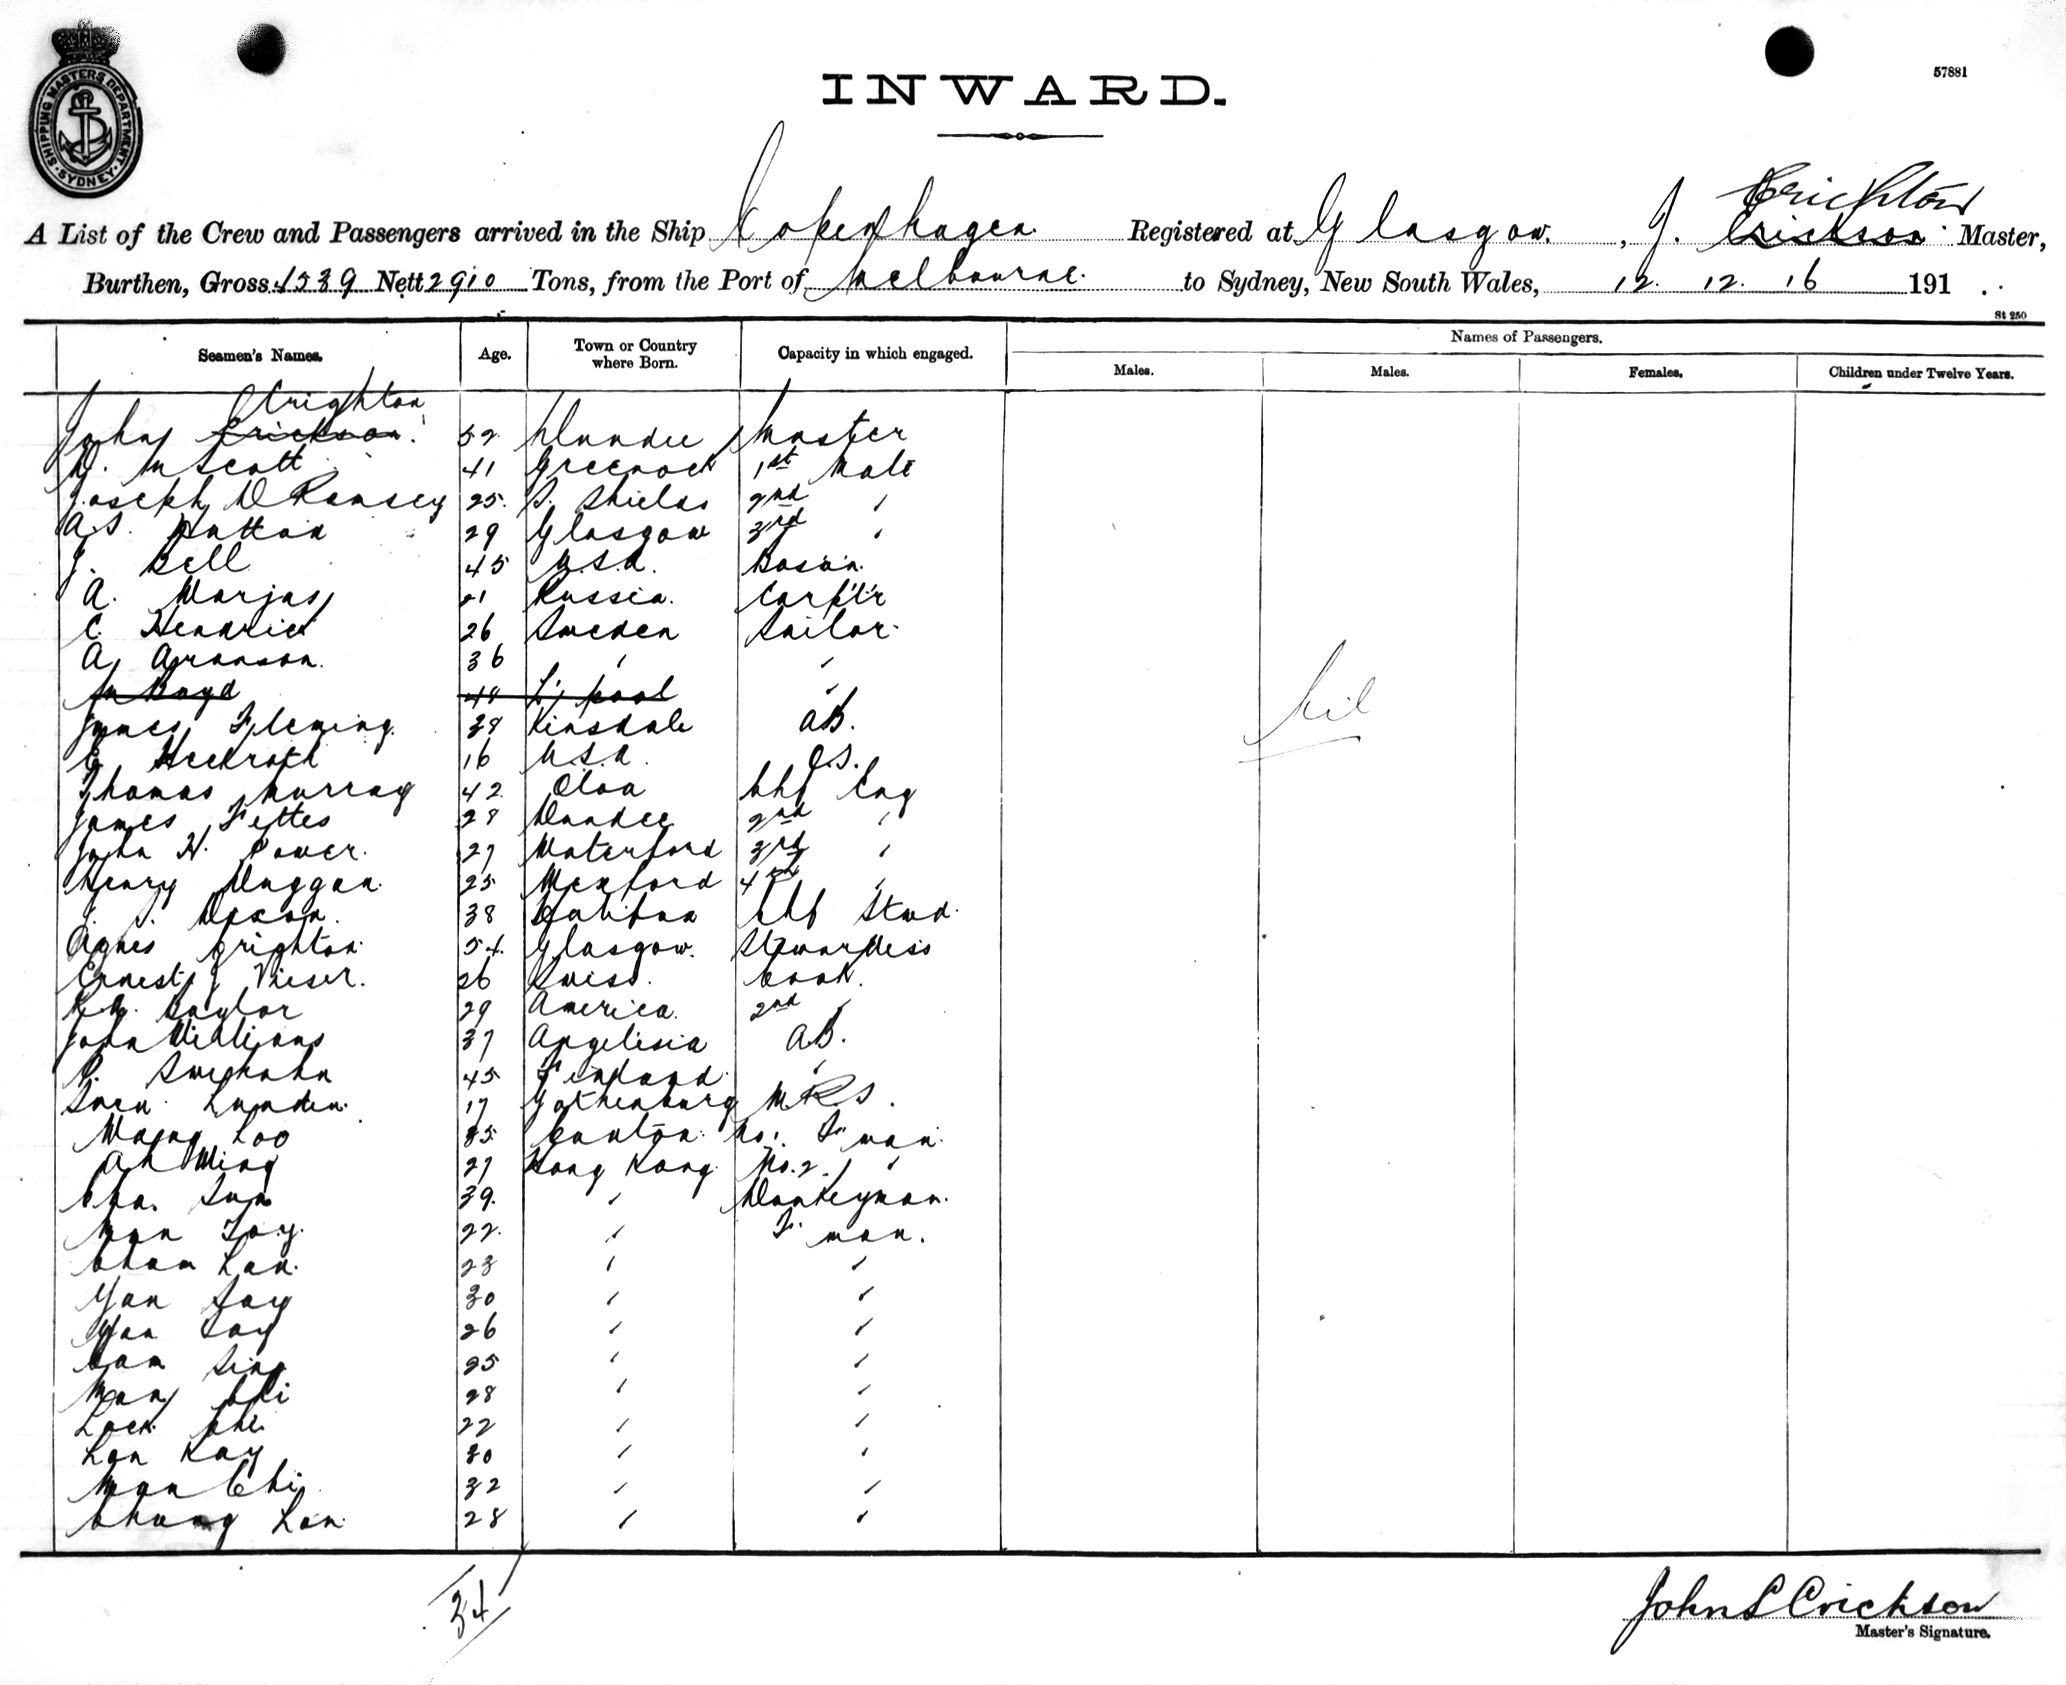 SHIPPING MASTERS DEPARTMENT
SYDNEY
57881
INWARD.
A List of the Crew and Passengers arrived in the Ship Copenhagen Registered at Glasgow. , J. Crichton Master,
Burthen, Gross 4539 Nett 2910 Tons, from the Port of Melbourne. to Sydney, New South Wales, 12. 12. 16 191 .
St 250
Seamen's Names. Age. Town or Country where Born. Capacity in which engaged. Names of Passengers.
Males. Males. Females. Children under Twelve Years.
Crighton
John Erickson. 52 Dundee Master
D. M Scott 41 Greenock 1st Mate
Joseph D Ramsey 25. S. Shields 2nd "
A.S. Hutton 29 Glasgow 3rd "
J. Bell 45 U.S.A. Bosun.
A. Warjas 21 Russia. Carp'tr
C. Hendrick 26 Sweden Sailor.
A. Aronson. 36 " "
M Boyd 48 L'pool "
James Fleming. 38 Kinsdale AB.
Heckroth 16 U.S.A. O.S.
Thomas Murray 42 Oloa Chf Eng
James Fettes 28 Dundee 2nd "
John H. Power. 27 Waterford 3rd "
Henry Duggan. 25 Wexford 4th "
J. S. Dixon. 38 Halifax Chf Stwd.
Agnes Crighton. 54. Glasgow. Stewardess
Ernest J Vieser. 26 Swiss. Cook.
Taylor 29 America. 2nd "
John Williams 37 Anglisia AB.
P. Swephahn 45 Finland. "
Sven Lunden. 17 Gothenburg M R S.
Woong Loo 35. Canton. No 1. F'man.
Ah Ming 27 Hong Kong. No. 2. "
Cha. Sun 39. " Donkeyman.
Man Foy. 22. " F'man.
Chan Lan. 23 " "
Yan Say 30 " "
Yan Say 26 " "
Sam Sing 25 " "
Man Chi 28 " "
Lock Chi 22 " "
Lan Kay 30 " "
Man Chi 32 " "
Chung Lan. 28 " "
Nil
34
John L Crichton
Master's Signature.